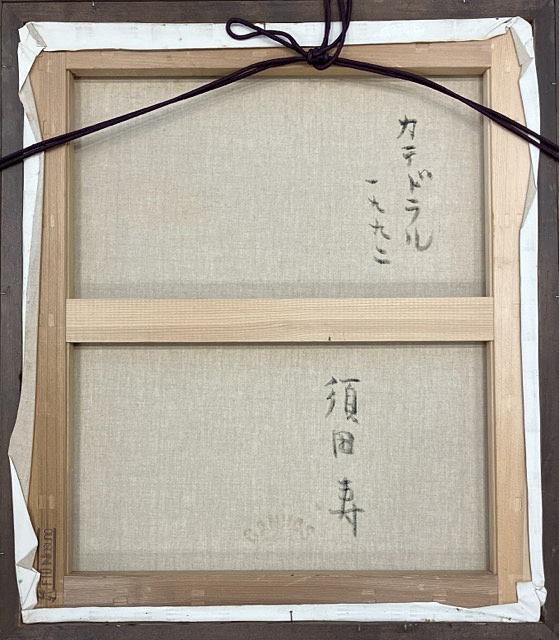 カテドラル
一九九二
須田寿
CANVAS